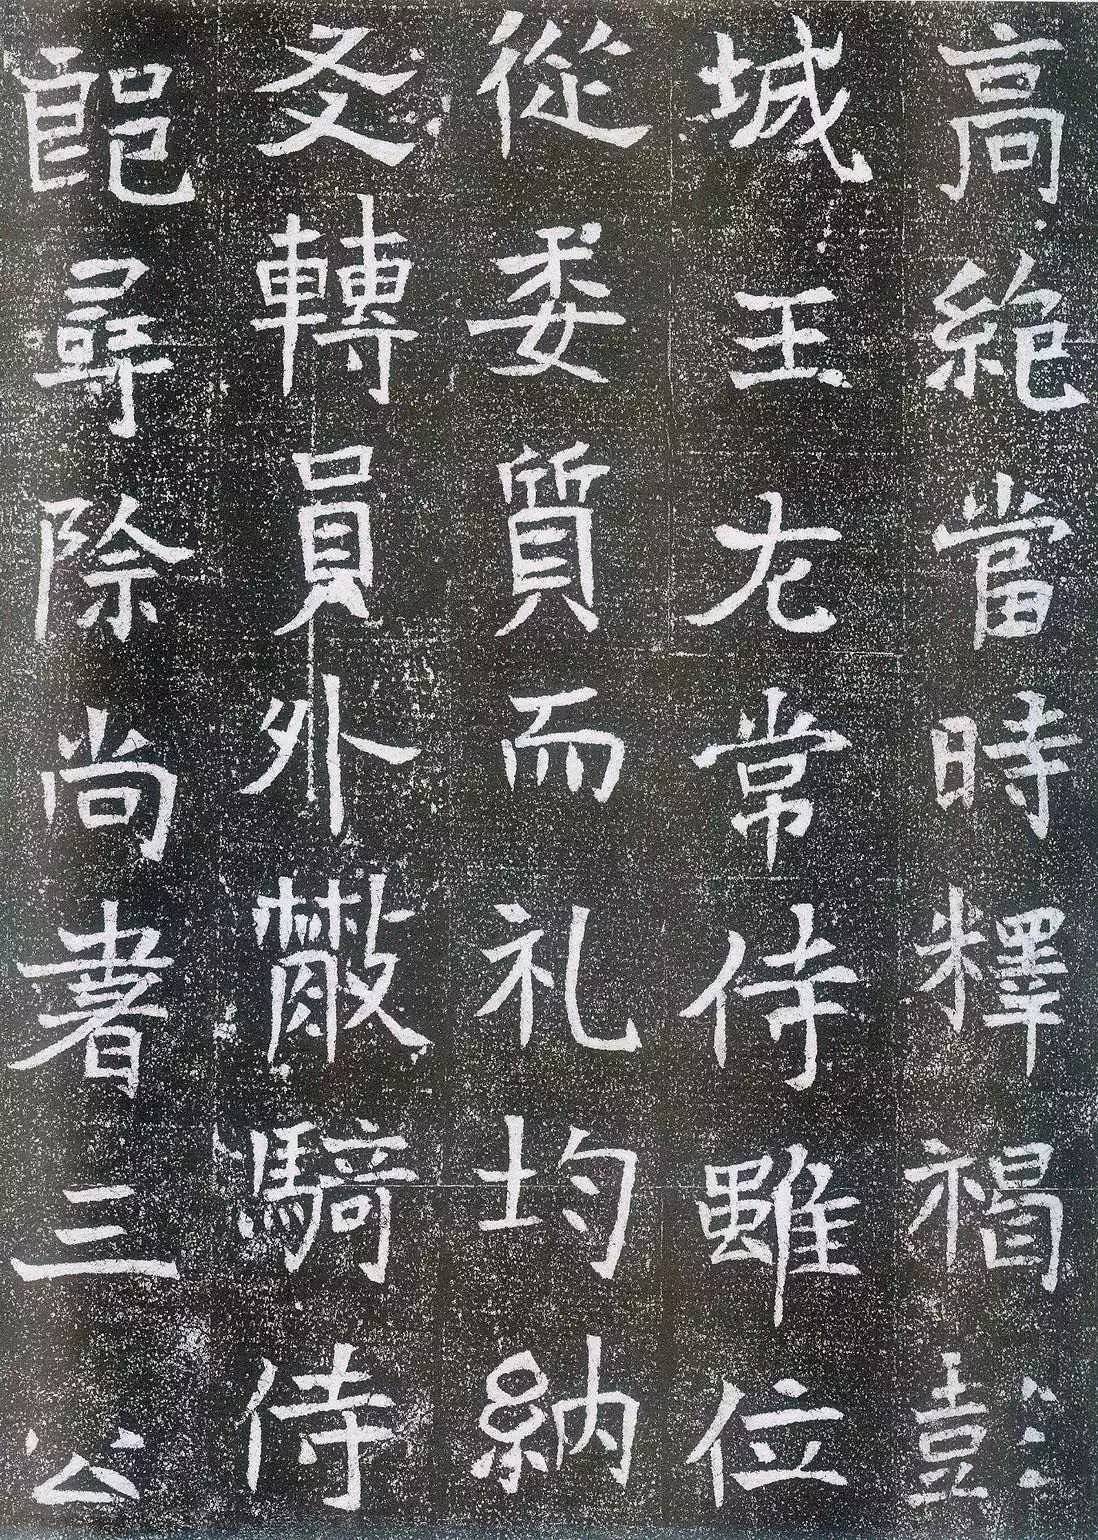 高絶當時釋褐彭
城王左常侍雖位
從委質而礼均納
友轉員外散騎侍
郎尋除尚書三公